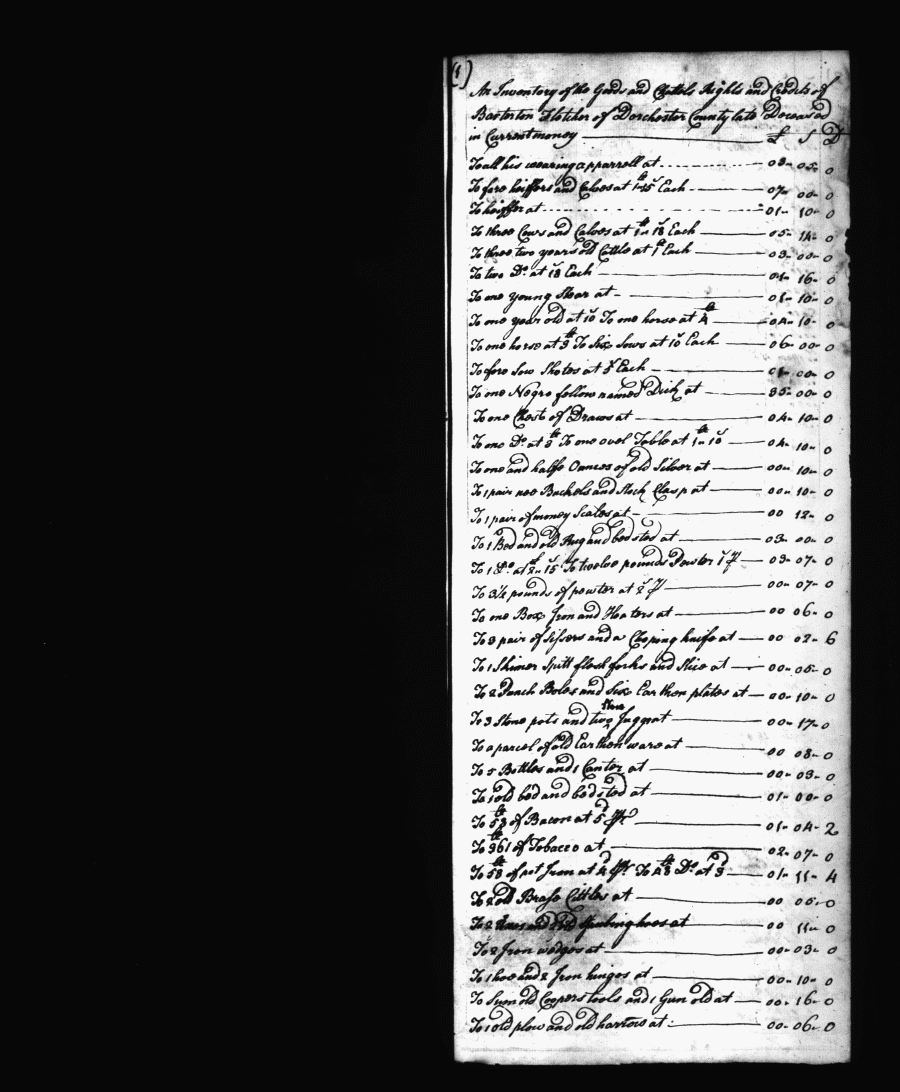 (1)
An Inventory of the Goods and Chattels Rights and Credits of
Barterton Fletcher of Dorchester County late Deceased
in Current money £ S D
To all his wearing apparrell at 03-05-0
To fore heiffers and Calves at 1-15 Each 07-00-0
To heiffer at 01-10-0
To three Cows and Calves at 1-18 Each 05-14-0
To three two years old Cattle at 1 Each 03-00-0
To two Do at 18 Each 01-16-0
To one young Stear at 01-10-0
To one year old at 10 To one horse at 4 04-10-0
To one horse at 3 To Six Sows at 10 Each 06-00-0
To fore Sow Shotes at 5 Each 01-00-0
To one Negro fellow named Dick at 35-00-0
To one Chest of Draws at 04-10-0
To one Do at 3 To one ovel Table at 1-10 04-10-0
To one and halfe Ounces of old Silver at 00-10-0
To 1 pair nee Buckels and Stock Clasp at 00-10-0
To 1 pair of money Scales at 00 12-0
To 1 Bed and old Rug and bedsted at 03-00-0
To 1 Do at 2-15 To twelve pounds Pewter 1 P 03-07-0
To 3½ pounds of pewter at 2 P 00-07-0
To one Box Iron and Heaters at 00 06-0
To 3 pair of Sissers and a Choping knife at 00 02-6
To 1 Skimer Spitt flesh forks and Slice at 00-05-0
To 2 Punch Boles and Six Earthen plates at 00-10-0
To 3 Stone pots and two three Juggs at 00-17-0
To a parcel of old Earthen ware at 00 08-0
To 5 Bottles and 1 Canter at 00-03-0
To 1 old bed and bedsted at 01-00-0
To 58 lb of Bacon at 5d P 01-04-2
To 361 lb of Tobacco at 02-07-0
To 58 lb of pot Iron at 4d P To 48 lb Do at 3d 01-11-4
To 2 old Brass Cittles at 00 05-0
To 2 and old Grubing hoes at 00 11-0
To 2 Iron wedges at 00-03-0
To 1 hoe and 2 Iron hinges at 00-10-0
To Sum old Coopers tools and 1 Gun old at 00-16-0
To 1 old plow and old harrow at 00-06-0